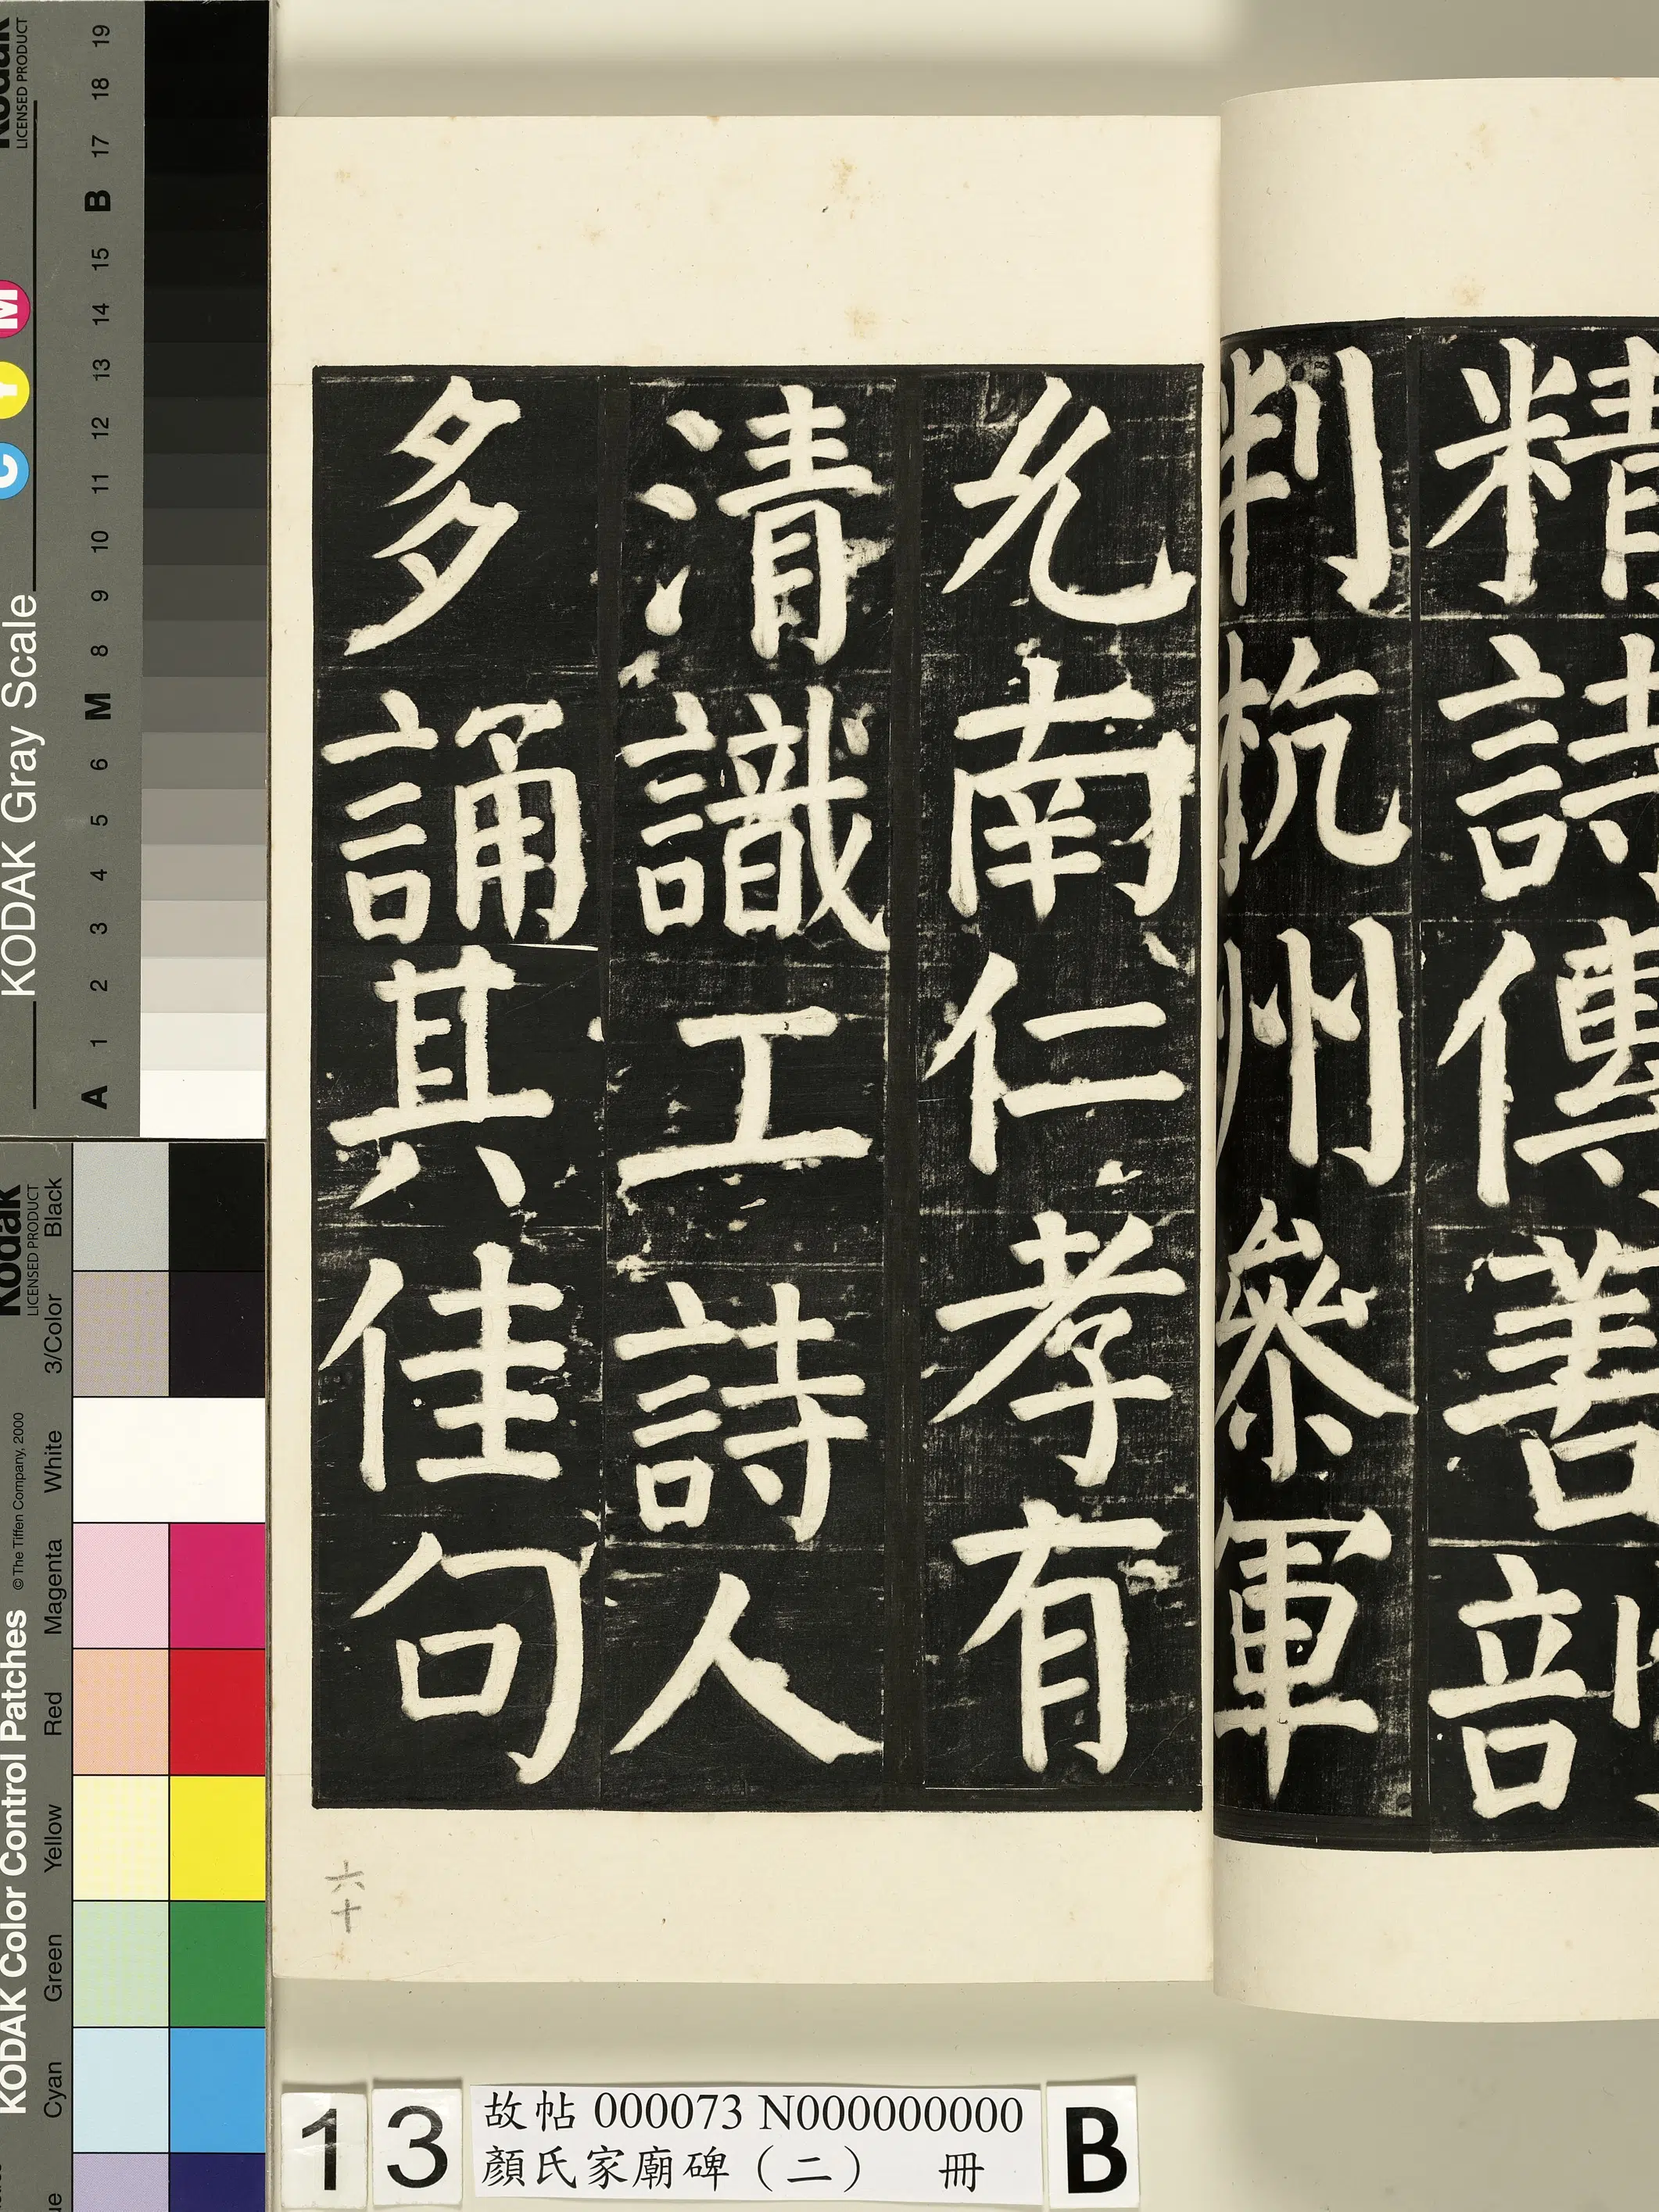 精詩傳善剖
判杭州參軍
允南仁孝有
清識工詩人
多誦其佳句
六十
13 故帖 000073 N000000000 B
顏氏家廟碑（二） 冊
Kodak
LICENSED PRODUCT
KODAK Gray Scale
C Y M
A 1 2 3 4 5 6 M 8 9 10 11 12 13 14 15 B 17 18 19
KODAK Color Control Patches
© The Tiffen Company, 2000
Kodak
LICENSED PRODUCT
Cyan Green Yellow Red Magenta White 3/Color Black